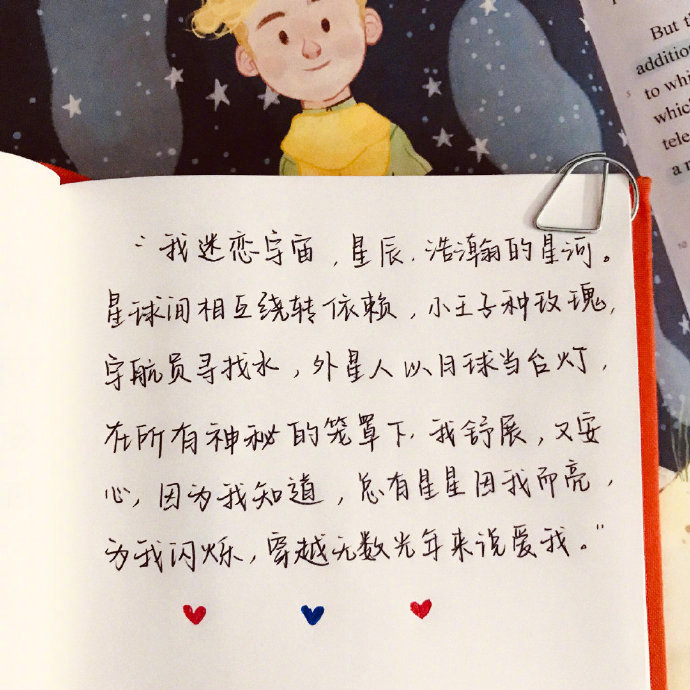 "我迷恋宇宙，星辰，浩瀚的星河。
星球间相互绕转依赖，小王子种玫瑰，
宇航员寻找水，外星人以月球当台灯，
在所有神秘的笼罩下，我舒展，又安
心，因为我知道，总有星星因我而亮，
为我闪烁，穿越无数光年来说爱我。"
But t
addition
to whi
which
tele
a n